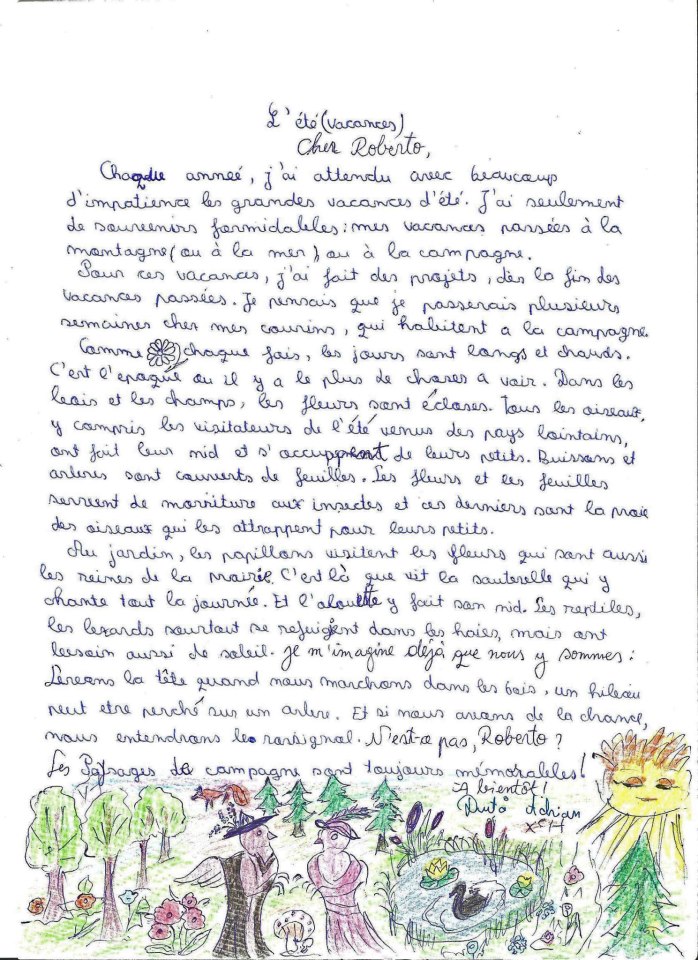 L'été (vacances)
Cher Roberto,
Chaque anneé, j'ai attendu avec beaucoup
d'impatience les grandes vacances d'été. J'ai seulement
de souvenirs formidables: mes vacances passées à la
montagne (ou à la mer) ou à la campagne.
Pour ces vacances, j'ai fait des projets, dès la fin des
vacances passées. Je pensais que je passerais plusieurs
semaines chez mes cousins, qui habitent a la campagne.
Comme chaque fois, les jours sont longs et chauds.
C'est l'epoque ou il y a le plus de choses a voir. Dans les
bois et les champs, les fleurs sont écloses. Tous les oiseaux,
y compris les visitateurs de l'été venus des pays lointains,
ont fait leur nid et s'occuppent de leurs petits. Buissons et
arbres sont couverts de feuilles. Les fleurs et les feuilles
servent de nourriture aux insectes et ces derniers sont la proie
des oiseaux qui les attrappent pour leurs petits.
Au jardin, les papillons visitent les fleurs qui sont aussi
les reines de la prairie. C'est là que vit la sauterelle qui y
chante tout la journée. Et l'alouette y fait son nid. Les reptiles,
les lezards sourtout se refuigent dans les haies, mais ont
besoin aussi de soleil. Je m'imagine déjà que nous y sommes:
Levons la tête quand nous marchons dans les bois, un hibou
peut etre perché sur un arbre. Et si nous avons de la chance,
nous entendrons le rossignol. N'est-ce pas, Roberto?
Les Paysages de campagne sont toujours mémorables!
A bientôt!
Duță Adrian